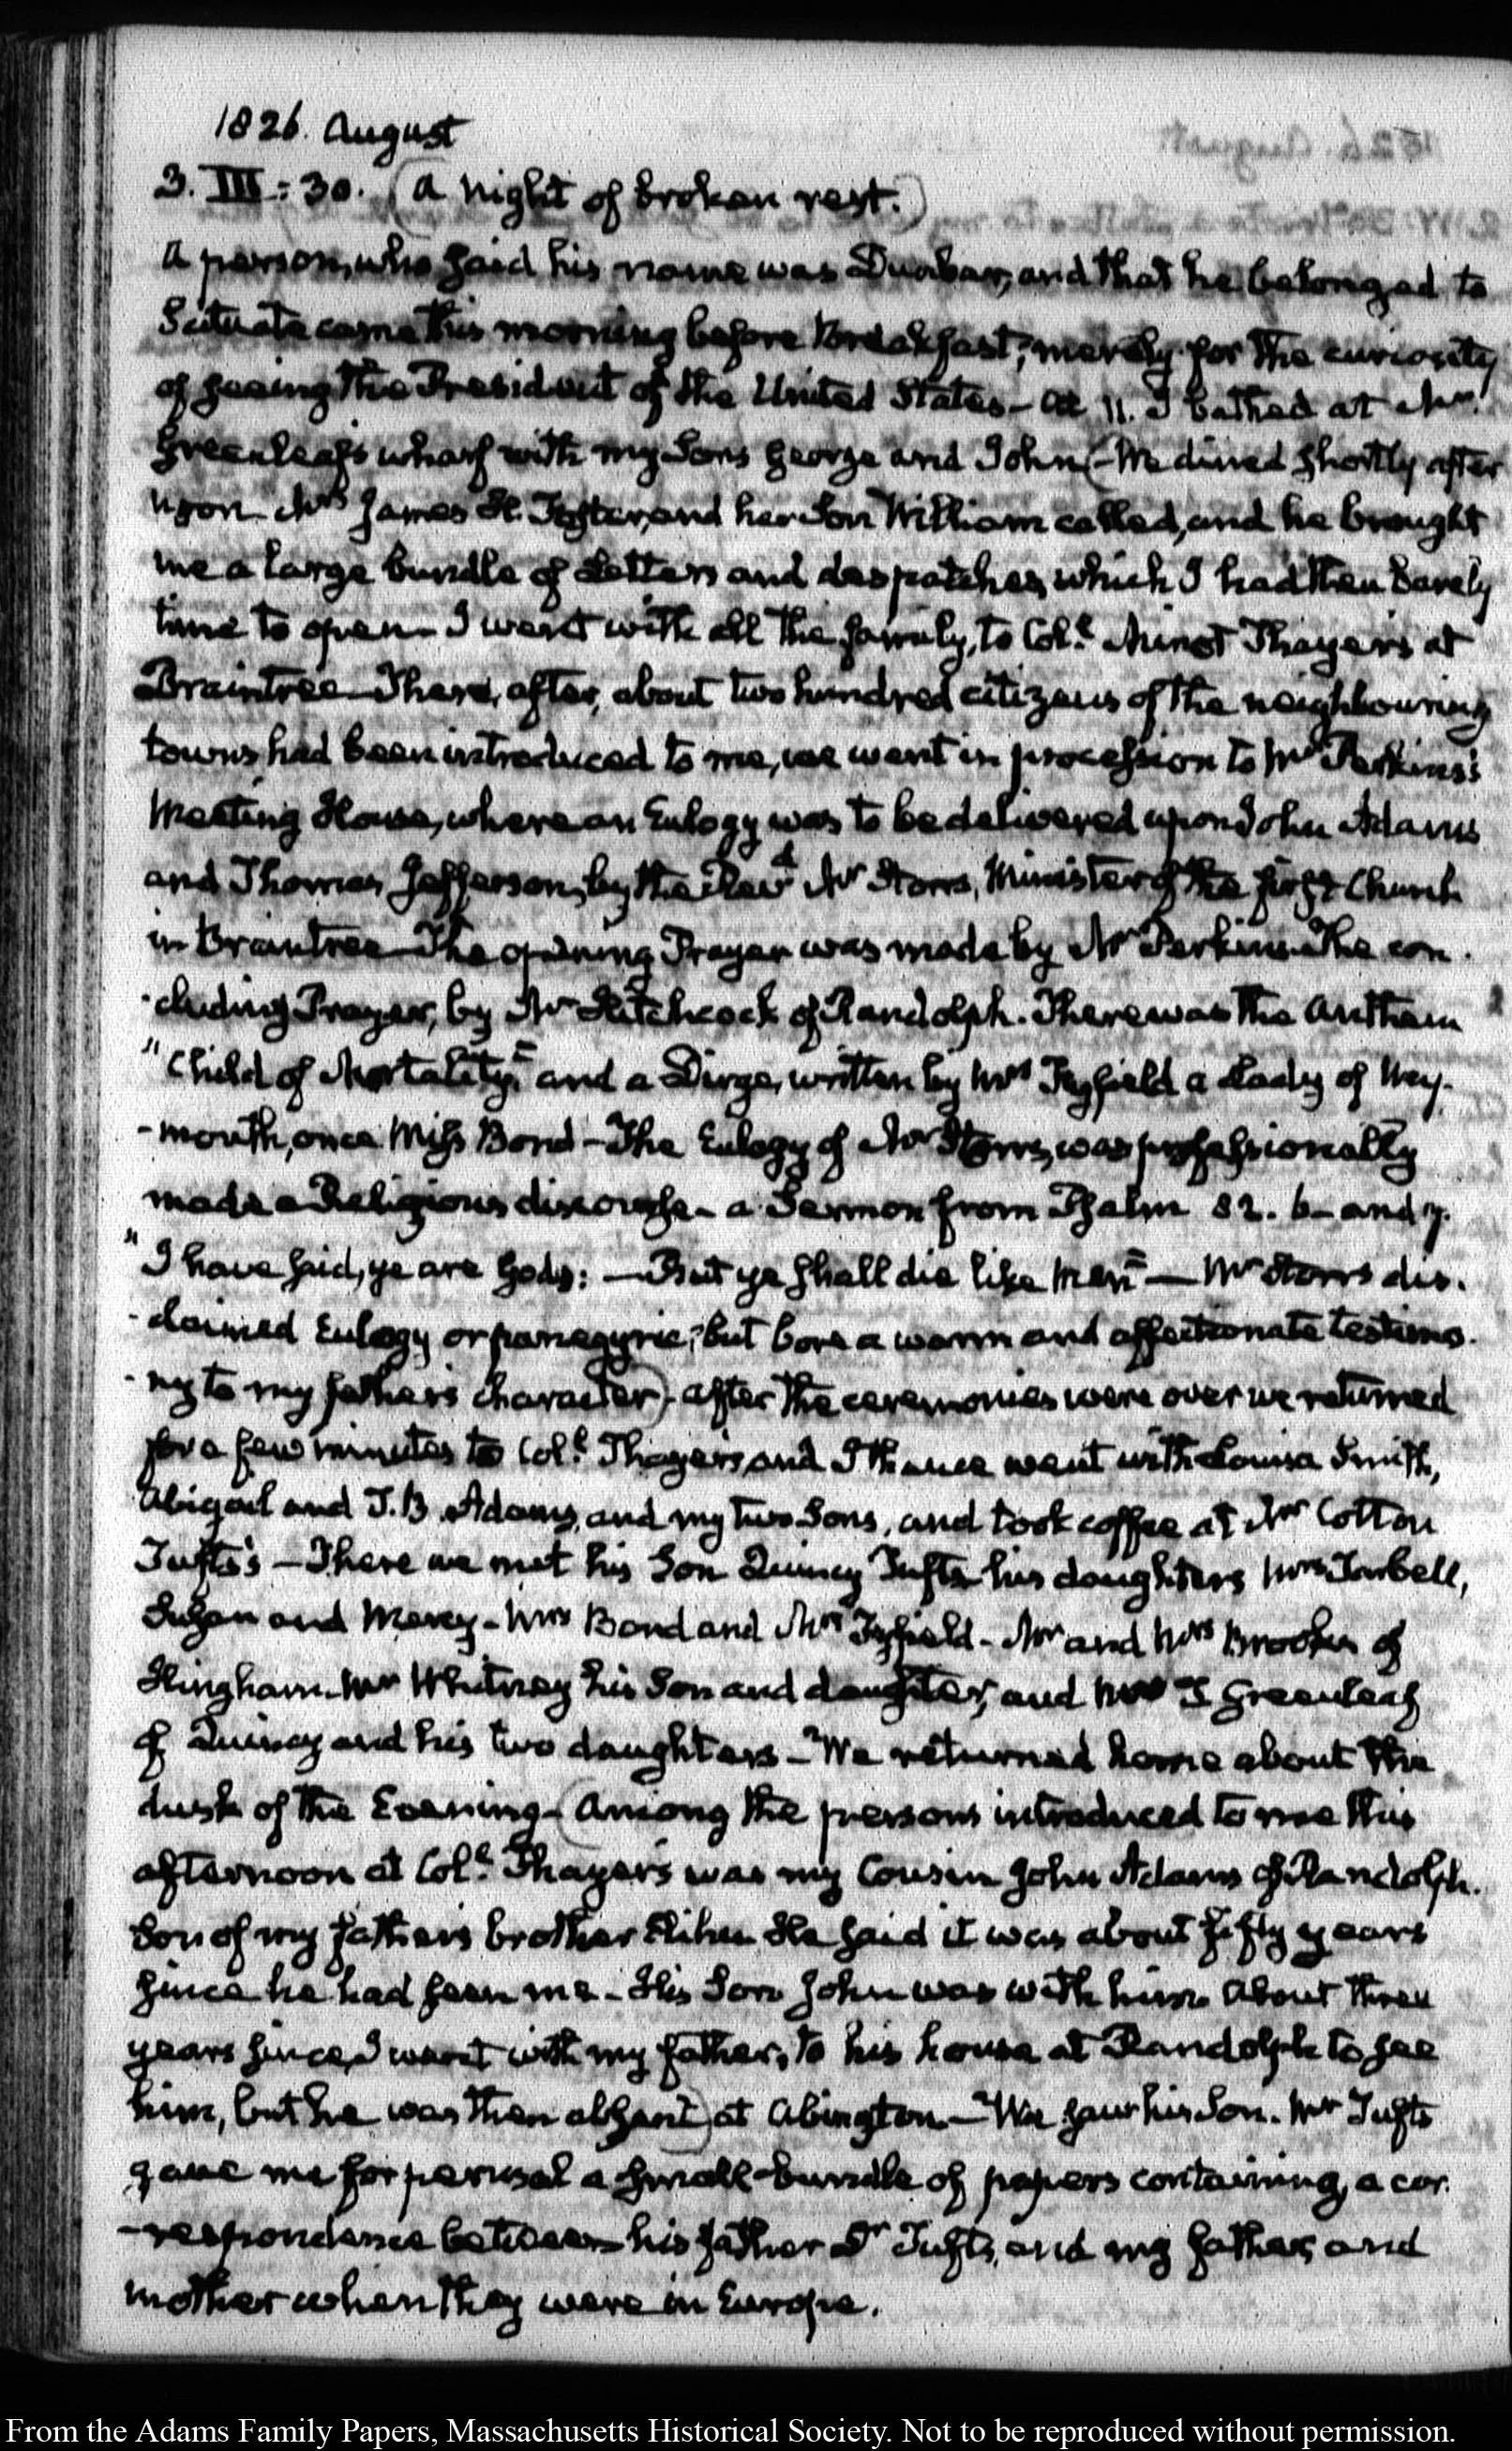 1826. August
3. III: 30. (A night of broken rest.)
A person, who said his name was Dunbar, and that he belonged to
Scituate came this morning before Breakfast, merely for the curiosity
of seeing the President of the United States – At 11. I bathed at Mr.
Greenleaf's wharf with my Sons George and John (– We dined shortly after
noon – Mrs James H. Foster, and her Son William called, and he brought
me a large bundle of Letters and despatches, which I had then barely
time to open – I went with all the family, to Coll. Minot Thayer's at
Braintree – There, after, about two hundred citizens of the neighbouring
towns had been introduced to me, we went in procession to Mr Perkins's
Meeting House, where an Eulogy was to be delivered upon John Adams
and Thomas Jefferson, by the Revd Mr Storrs, Minister of the first Church
in Braintree – The opening Prayer was made by Mr Perkins – The con-
-cluding Prayer, by Mr Hitchcock of Randolph. There was the Anthem
"Child of Mortality," and a Dirge, written by Mrs Fyfield a Lady of Wey-
-mouth, once Miss Bond – The Eulogy of Mr Storrs, was professionally
made a Religious discourse – a Sermon from Psalm 82. 6 – and 7.
"I have said, ye are Gods: — But ye shall die like Men" — Mr Storrs dis-
-claimed Eulogy or panegyric; but bore a warm and affectionate testimo-
-ny to my father's character) – After the ceremonies were over we returned
for a few minutes to Coll. Thayer's, and I thence went with Louisa Smith,
Abigail and J. B. Adams, and my two Sons, and took coffee at Mr Cotton
Tufts's – There we met his Son Quincy Tufts his daughters Mrs Tarbell,
Susan and Mercy – Mrs Bond and Mrs Fyfield – Mr and Mrs Brooks of
Hingham – Mr Whitney his Son and daughter, and Mr T Greenleaf
of Quincy and his two daughters – We returned home about the
dusk of the Evening – (Among the persons introduced to me this
afternoon at Coll. Thayer's was my Cousin John Adams of Randolph.
Son of my father's brother Elihu. He said it was about fifty years
since he had seen me – His Son John was with him. About three
years since, I went with my father, to his house at Randolph to see
him, but he was then absent) at Abington – We saw his Son. Mr Tufts
gave me for perusal a small bundle of papers containing, a cor-
-respondence between his father Dr Tufts, and my father, and
mother when they were in Europe.
From the Adams Family Papers, Massachusetts Historical Society. Not to be reproduced without permission.